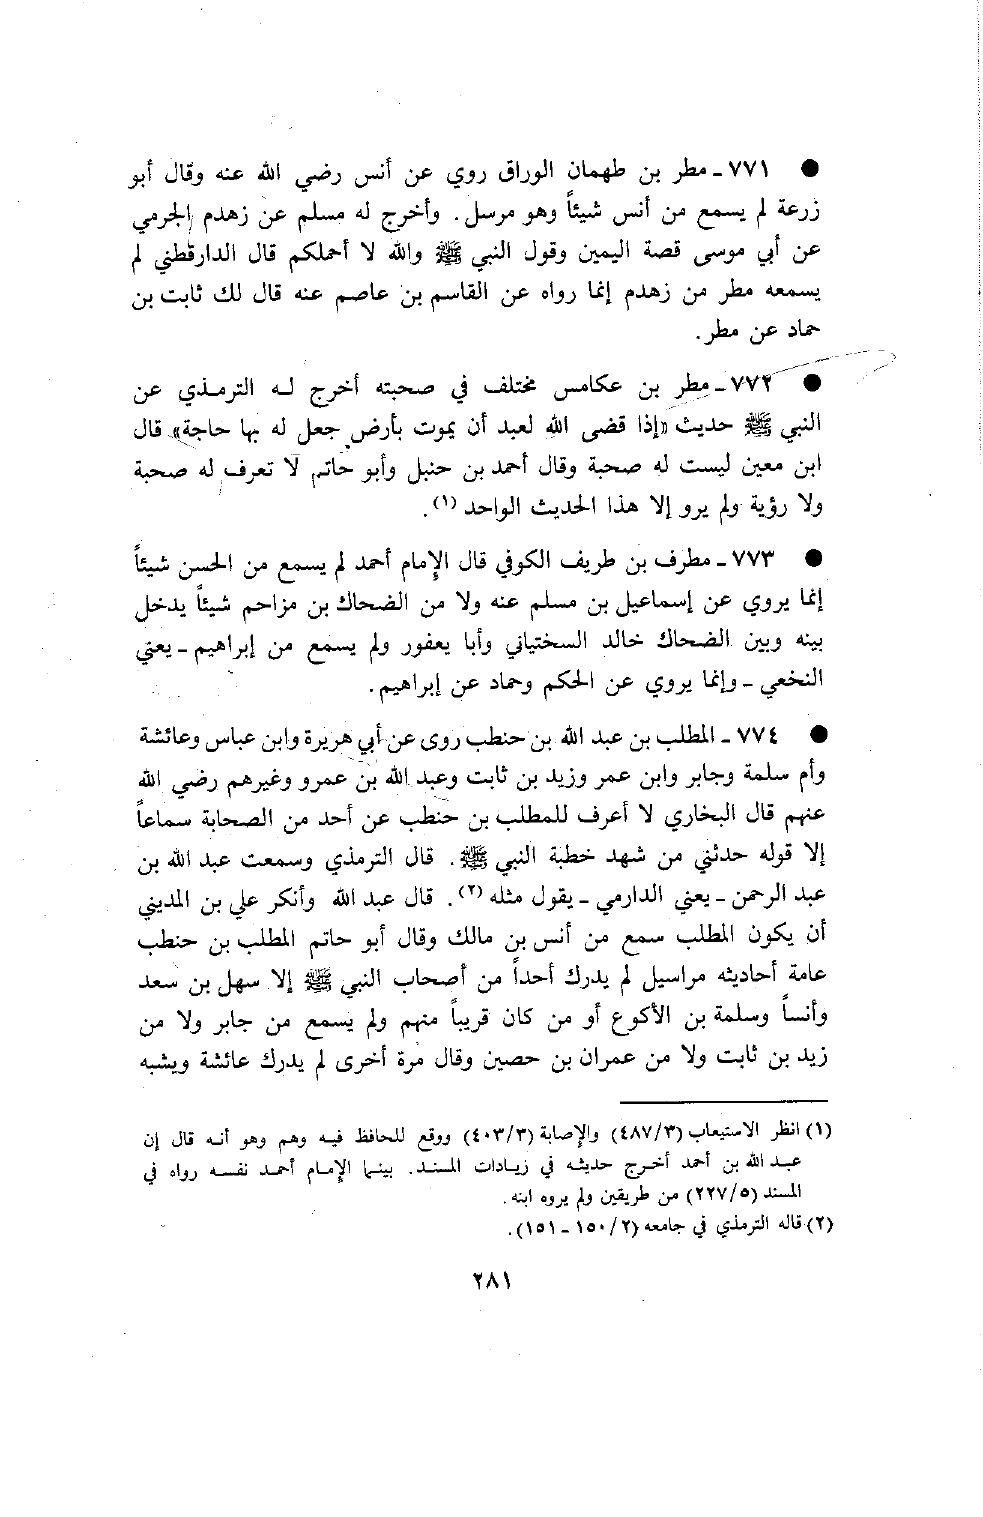 ● ٧٧١ ـ مطر بن طهمان الوراق روي عن أنس رضي الله عنه وقال أبو
زرعة لم يسمع من أنس شيئاً وهو مرسل. وأخرج له مسلم عن زهدم الجرمي
عن أبي موسى قصة اليمين وقول النبي ﷺ والله لا أحملكم قال الدارقطني لم
يسمعه مطر من زهدم إنما رواه عن القاسم بن عاصم عنه قال لك ثابت بن
حماد عن مطر.
● ٧٧٢ ـ مطر بن عكامس مختلف في صحبته أخرج له الترمذي عن
النبي ﷺ حديث «إذا قضى الله لعبد أن يموت بأرض جعل له بها حاجة» قال
ابن معين ليست له صحبة وقال أحمد بن حنبل وأبو حاتم لا تعرف له صحبة
ولا رؤية ولم يرو إلا هذا الحديث الواحد (١).
● ٧٧٣ ـ مطرف بن طريف الكوفي قال الإمام أحمد لم يسمع من الحسن شيئاً
إنما يروي عن إسماعيل بن مسلم عنه ولا من الضحاك بن مزاحم شيئاً يدخل
بينه وبين الضحاك خالد السختياني وأبا يعفور ولم يسمع من إبراهيم ـ يعني
النخعي ـ وإنما يروي عن الحكم وحماد عن إبراهيم.
● ٧٧٤ ـ المطلب بن عبد الله بن حنطب روى عن أبي هريرة وابن عباس وعائشة
وأم سلمة وجابر وابن عمر وزيد بن ثابت وعبد الله بن عمرو وغيرهم رضي الله
عنهم قال البخاري لا أعرف للمطلب بن حنطب عن أحد من الصحابة سماعاً
إلا قوله حدثني من شهد خطبة النبي ﷺ. قال الترمذي وسمعت عبد الله بن
عبد الرحمن ـ يعني الدارمي ـ يقول مثله (٢). قال عبد الله وأنكر علي بن المديني
أن يكون المطلب سمع من أنس بن مالك وقال أبو حاتم المطلب بن حنطب
عامة أحاديثه مراسيل لم يدرك أحداً من أصحاب النبي ﷺ إلا سهل بن سعد
وأنساً وسلمة بن الأكوع أو من كان قريباً منهم ولم يسمع من جابر ولا من
زيد بن ثابت ولا من عمران بن حصين وقال مرة أخرى لم يدرك عائشة ويشبه
(١) انظر الاستيعاب (٤٨٧/٣) والإصابة (٤٠٣/٣) ووقع للحافظ فيه وهم وهو أنه قال إن
عبد الله بن أحمد أخرج حديثه في زيادات المسند. بينما الإمام أحمد نفسه رواه في
المسند (٢٢٧/٥) من طريقين ولم يروه ابنه.
(٢) قاله الترمذي في جامعه (١٥٠/٢ ـ ١٥١).
٢٨١